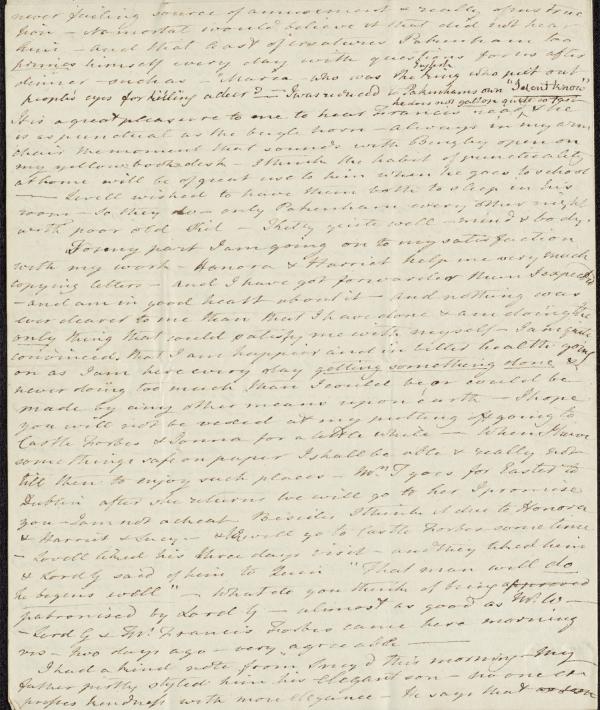 never failing source of amusement & really of instruc
tion - No mortal would believe it that did not hear
him - And that last of creatures Pakenham too
primes himself every day with questions for us after
dinner - such as - "Maria who was the English King who put out
people's eyes for killing a deer? - I was reduced to Pakenham's own "I don't know"
It is a great pleasure to me to hear Francis read & he
he does not get on quite so fast
is as punctual as the bugle horn - always in my arm
chair the moment that sounds with Bingley open on
my yellow book desk - I think the habit of punctuality
at home will be of great use to him when he goes to school
- Lovell wished to have them both to sleep in his
room - So they do - only Pakenham every other night
with poor old - They quite well - mind & body.
For my part I am going on to my satisfaction
with my work - Honora & Harriet help me very much
copying letters - and I have got forwarder than I expected
- and am in good heart about it - and nothing was
ever clearer to me than that I have done & am doing the
only thing that could satisfy me with myself - I am quite
convinced that I am happier and in better health going
on as I am here every day getting something done &
never doing too much than I could be or could be
made by any other means upon earth - I hope
you will not be vexed at my putting off going to
Castle Forbes & Sonna for a little while - When I have
something safe on paper I shall be able & really not
till then to enjoy such places - Mrs T goes for Easter to
Dublin after she returns we will go to her I promise
you - I am not a cheat Besides I think it due to Honora
& Harriet & Lucy - & will go to Castle Forbes some time
- Lovell liked his three days visit - and they liked him
& Lord G said of him to "That man will do
he begins well" - What do you think of being approved
patronised by Lord G - almost as good as
- Lord G & Mr Francis Forbes came here morning
vis - two days ago - very agreeable -
I had a kind note from this morning - My
father justly styled him his elegant son - no one ex
presses kindness with more elegance - He says that